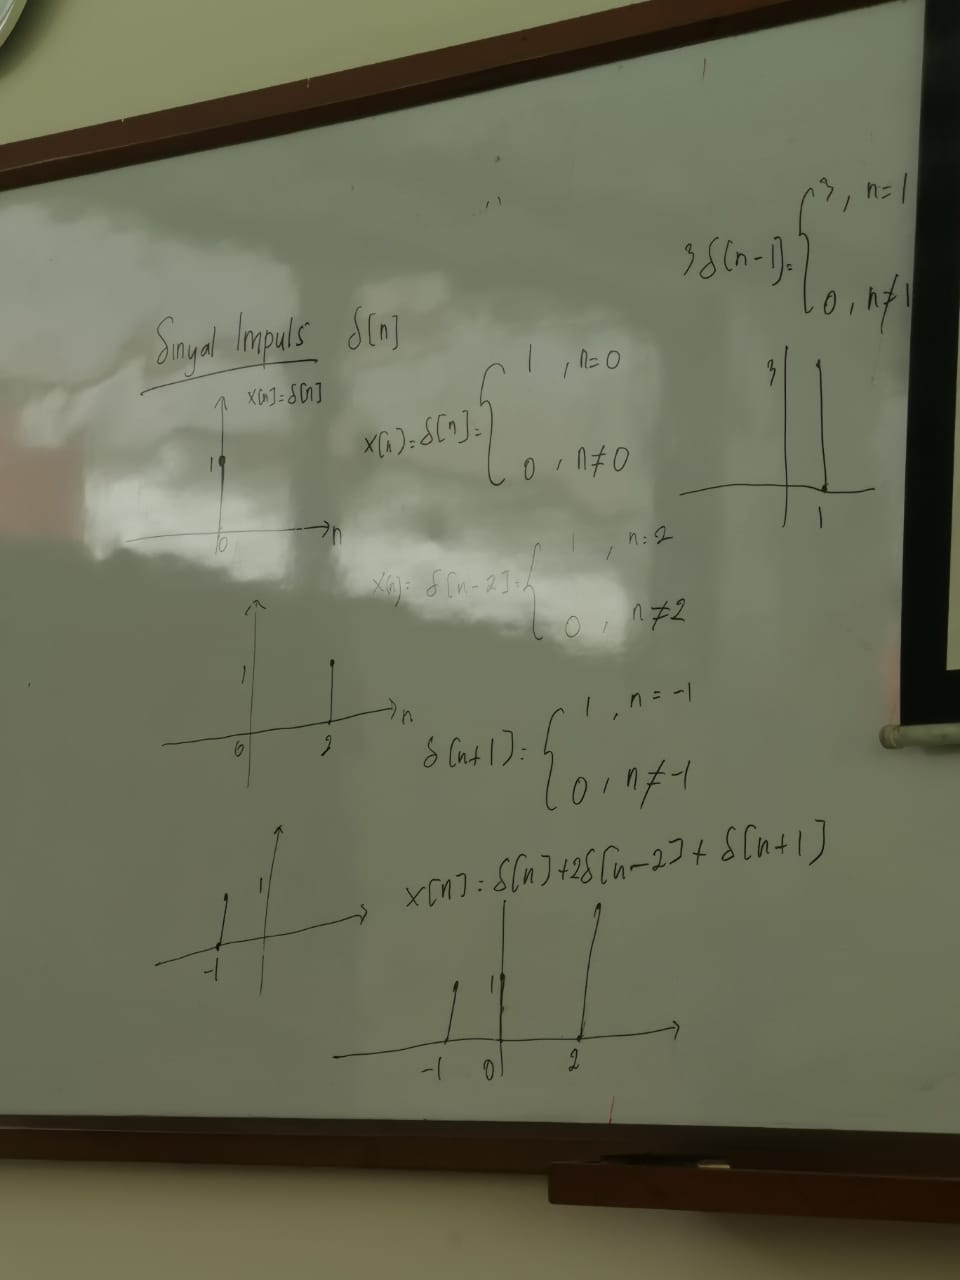 Sinyal Impuls δ[n]
x[n]=δ[n]
1
0
n
x[n]=δ[n]= { 1 , n=0
0 , n≠0
x[n]= δ[n-2]= { 1 , n=2
0 , n≠2
1
0
2
n
δ[n+1]= { 1 , n=-1
0 , n≠-1
1
-1
x[n]=δ[n]+2δ[n-2]+δ[n+1]
1
-1
0
2
3δ[n-1]= { 3, n=1
0, n≠1
3
1